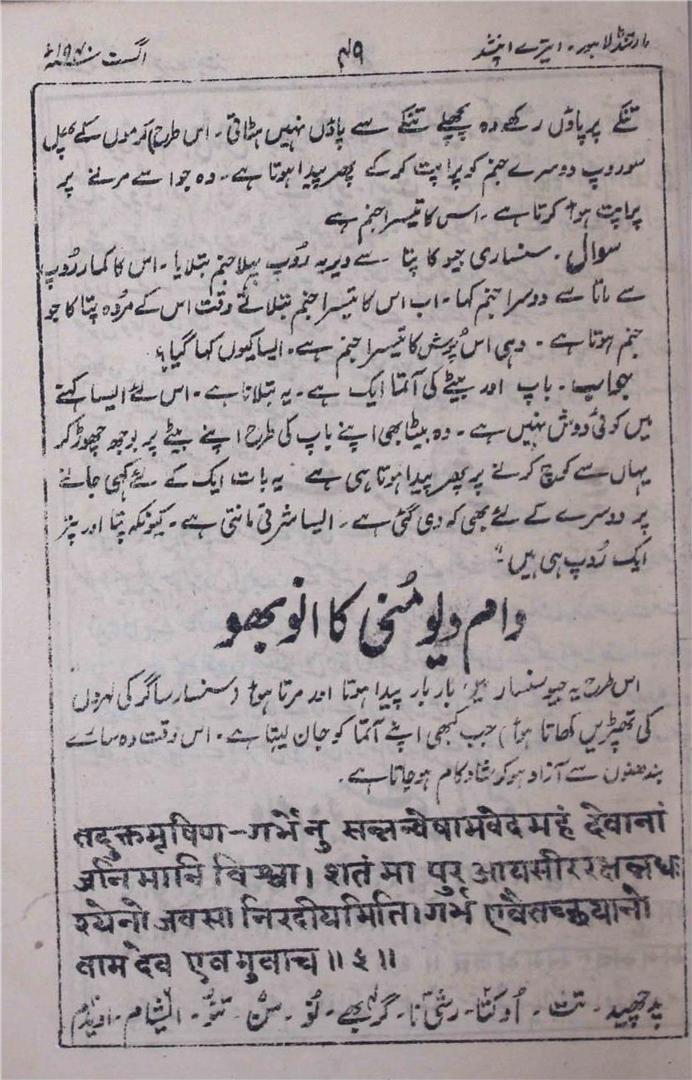 مارتنڈ لاہور۔ ایترے اپنشد ۴۹ اگست ۱۹۴۰ء
تنکے پر پاؤں رکھے وہ پچھلے تنکے سے پاؤں نہیں ہٹاتی۔ اس طرح کرموں کے پھل
سوروپ دوسرے جنم کو پراپت کر کے پھر پیدا ہوتا ہے۔ وہ جو اسے مرنے پر
پراپت ہوا کرتا ہے۔ اس کا تیسرا جنم ہے
سوال۔ سنساری جیو کا پتا سے ویریہ رُوپ پہلا جنم بتلایا۔ اس کا کمار رُوپ
سے ماتا سے دوسرا جنم کہا۔ اب اس کا تیسرا جنم بتلاتے وقت اس کے مردہ پتا کا جو
جنم ہوتا ہے۔ وہی اس پُرش کا تیسرا جنم ہے۔ ایسا کیوں کہا گیا؟
جواب۔ باپ اور بیٹے کی آتما ایک ہے۔ یہ بتلانا ہے۔ اس لئے ایسا کہنے
میں کوئی دوش نہیں ہے۔ وہ بیٹا بھی اپنے باپ کی طرح اپنے بیٹے پر بوجھ چھوڑ کر
یہاں سے کوچ کرنے پر پھر پیدا ہوتا ہی ہے یہ بات ایک کے لئے کہی جانے
پر دوسرے کے لئے بھی کہہ دی گئی ہے۔ ایسا شرتی مانتی ہے۔ کیونکہ پتا اور پتر
ایک رُوپ ہی ہیں"
وام دیو مُنی کا انوبھو
اس طرح یہ جیو سنسار میں بار بار پیدا ہوتا اور مرتا ہوا (سنسار ساگر کی لہروں
کی تھپڑیں کھاتا ہوا) جب کبھی اپنے آتما کو جان لیتا ہے۔ اس وقت وہ سارے
بندھنوں سے آزاد ہو کر شاد کام ہو جاتا ہے۔
तदुक्तमृषिणा-गर्भे नु सन्नन्वेषामवेदमहं देवानां
जनिमानि विश्वा। शतं मा पुर आयसीररक्षन्नधः
श्येनो जवसा निरदीयमिति। गर्भ एवैतच्छयानो
वामदेव एवमुवाच ॥ ५ ॥
پدچھید۔ تت۔ اُوکتا۔ رشی نا۔ گربھے۔ نُو۔ سن۔ نو۔ ایشام۔ اویدم